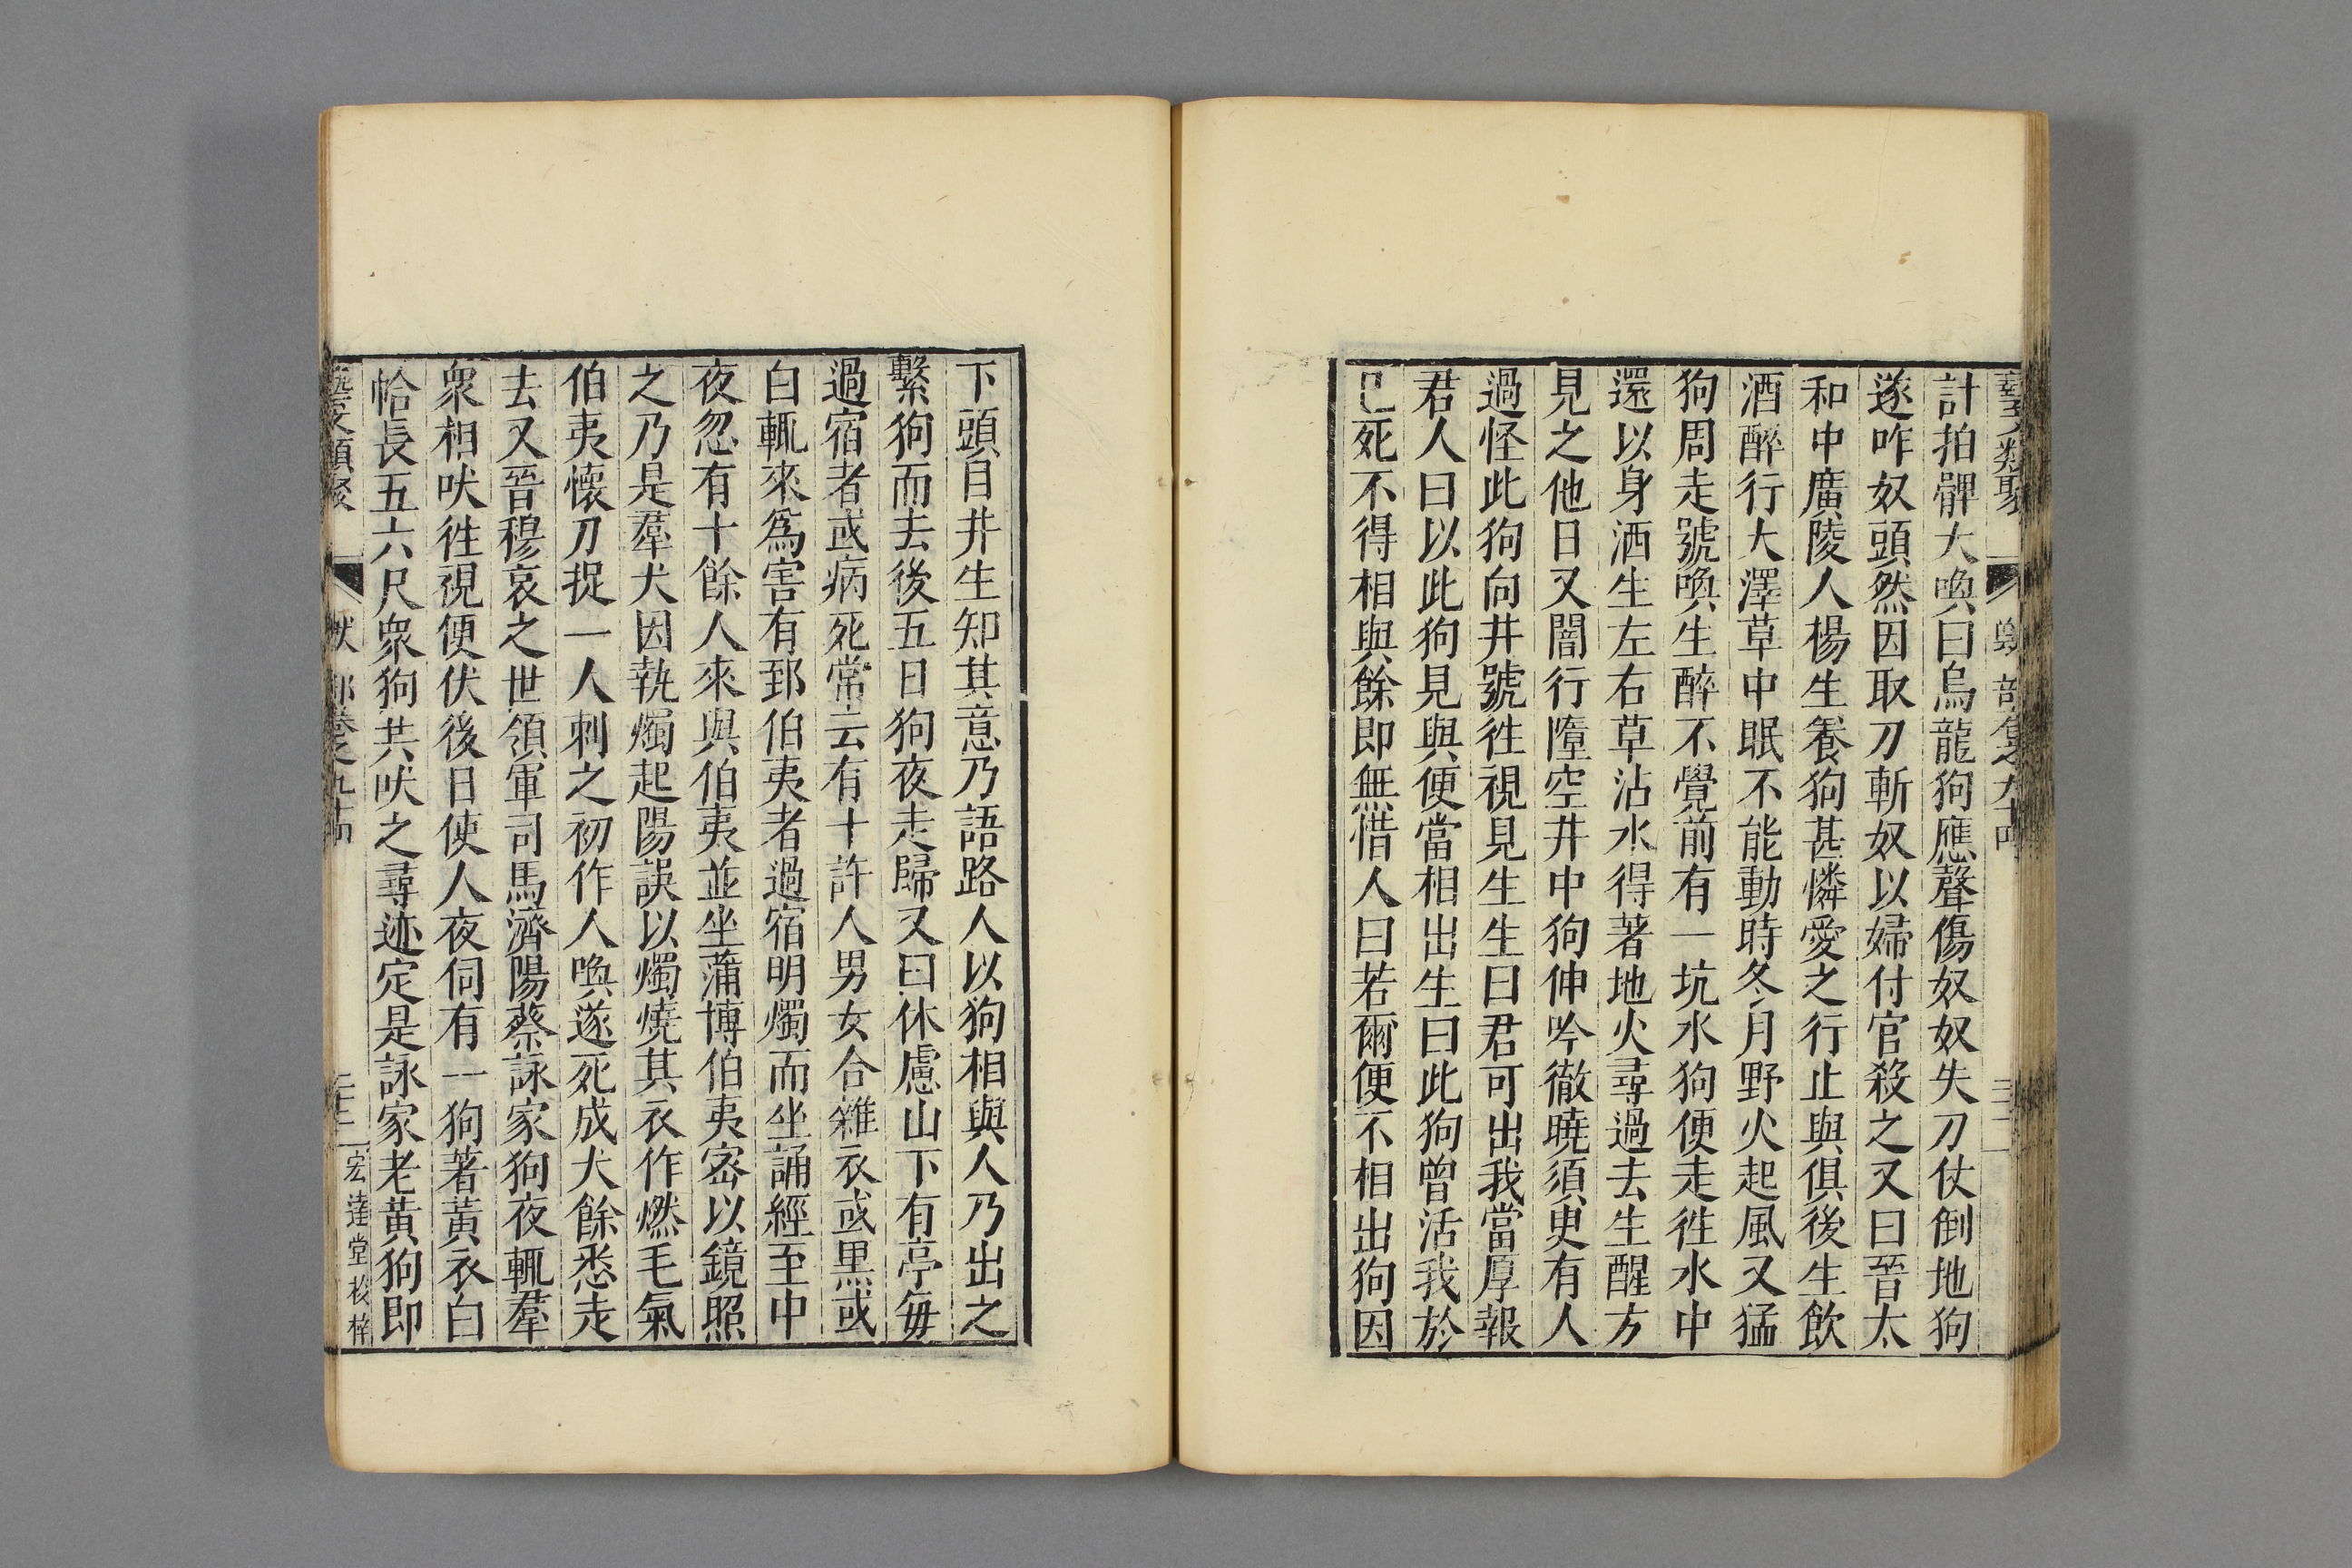 計拍髀大喚曰烏龍狗應聲傷奴奴失刀仗倒地狗
遂咋奴頭然因取刀斬奴以婦付官殺之又曰晉太
和中廣陵人楊生養狗甚憐愛之行止與俱後生飲
酒醉行大澤草中眠不能動時冬月野火起風又猛
狗周走號喚生醉不覺前有一坑水狗便走徃水中
還以身洒生左右草沾水得著地火尋過去生醒方
見之他日又闇行墮空井中狗伸吟徹曉須臾有人
過怪此狗向井號徃視見生生曰君可出我當厚報
君人曰以此狗見與便當相出生曰此狗曾活我於
已死不得相與餘即無惜人曰若爾便不相出狗因
下頭目井生知其意乃語路人以狗相與人乃出之
繫狗而去後五日狗夜走歸又曰休慮山下有亭每
過宿者或病死常云有十許人男女合雜衣或黑或
白輒來爲害有郅伯夷者過宿明燭而坐誦經至中
夜忽有十餘人來與伯夷並坐蒲博伯夷密以鏡照
之乃是羣犬因執燭起陽誤以燭燒其衣作燃毛氣
伯夷懷刀捉一人刺之初作人喚遂死成犬餘悉走
去又晉穆哀之世領軍司馬濟陽蔡詠家狗夜輒羣
衆相吠徃視便伏後日使人夜伺有一狗著黃衣白
帢長五六尺衆狗共吠之尋迹定是詠家老黃狗即
藝文類聚 獸部卷之九十四
宏達堂校梓